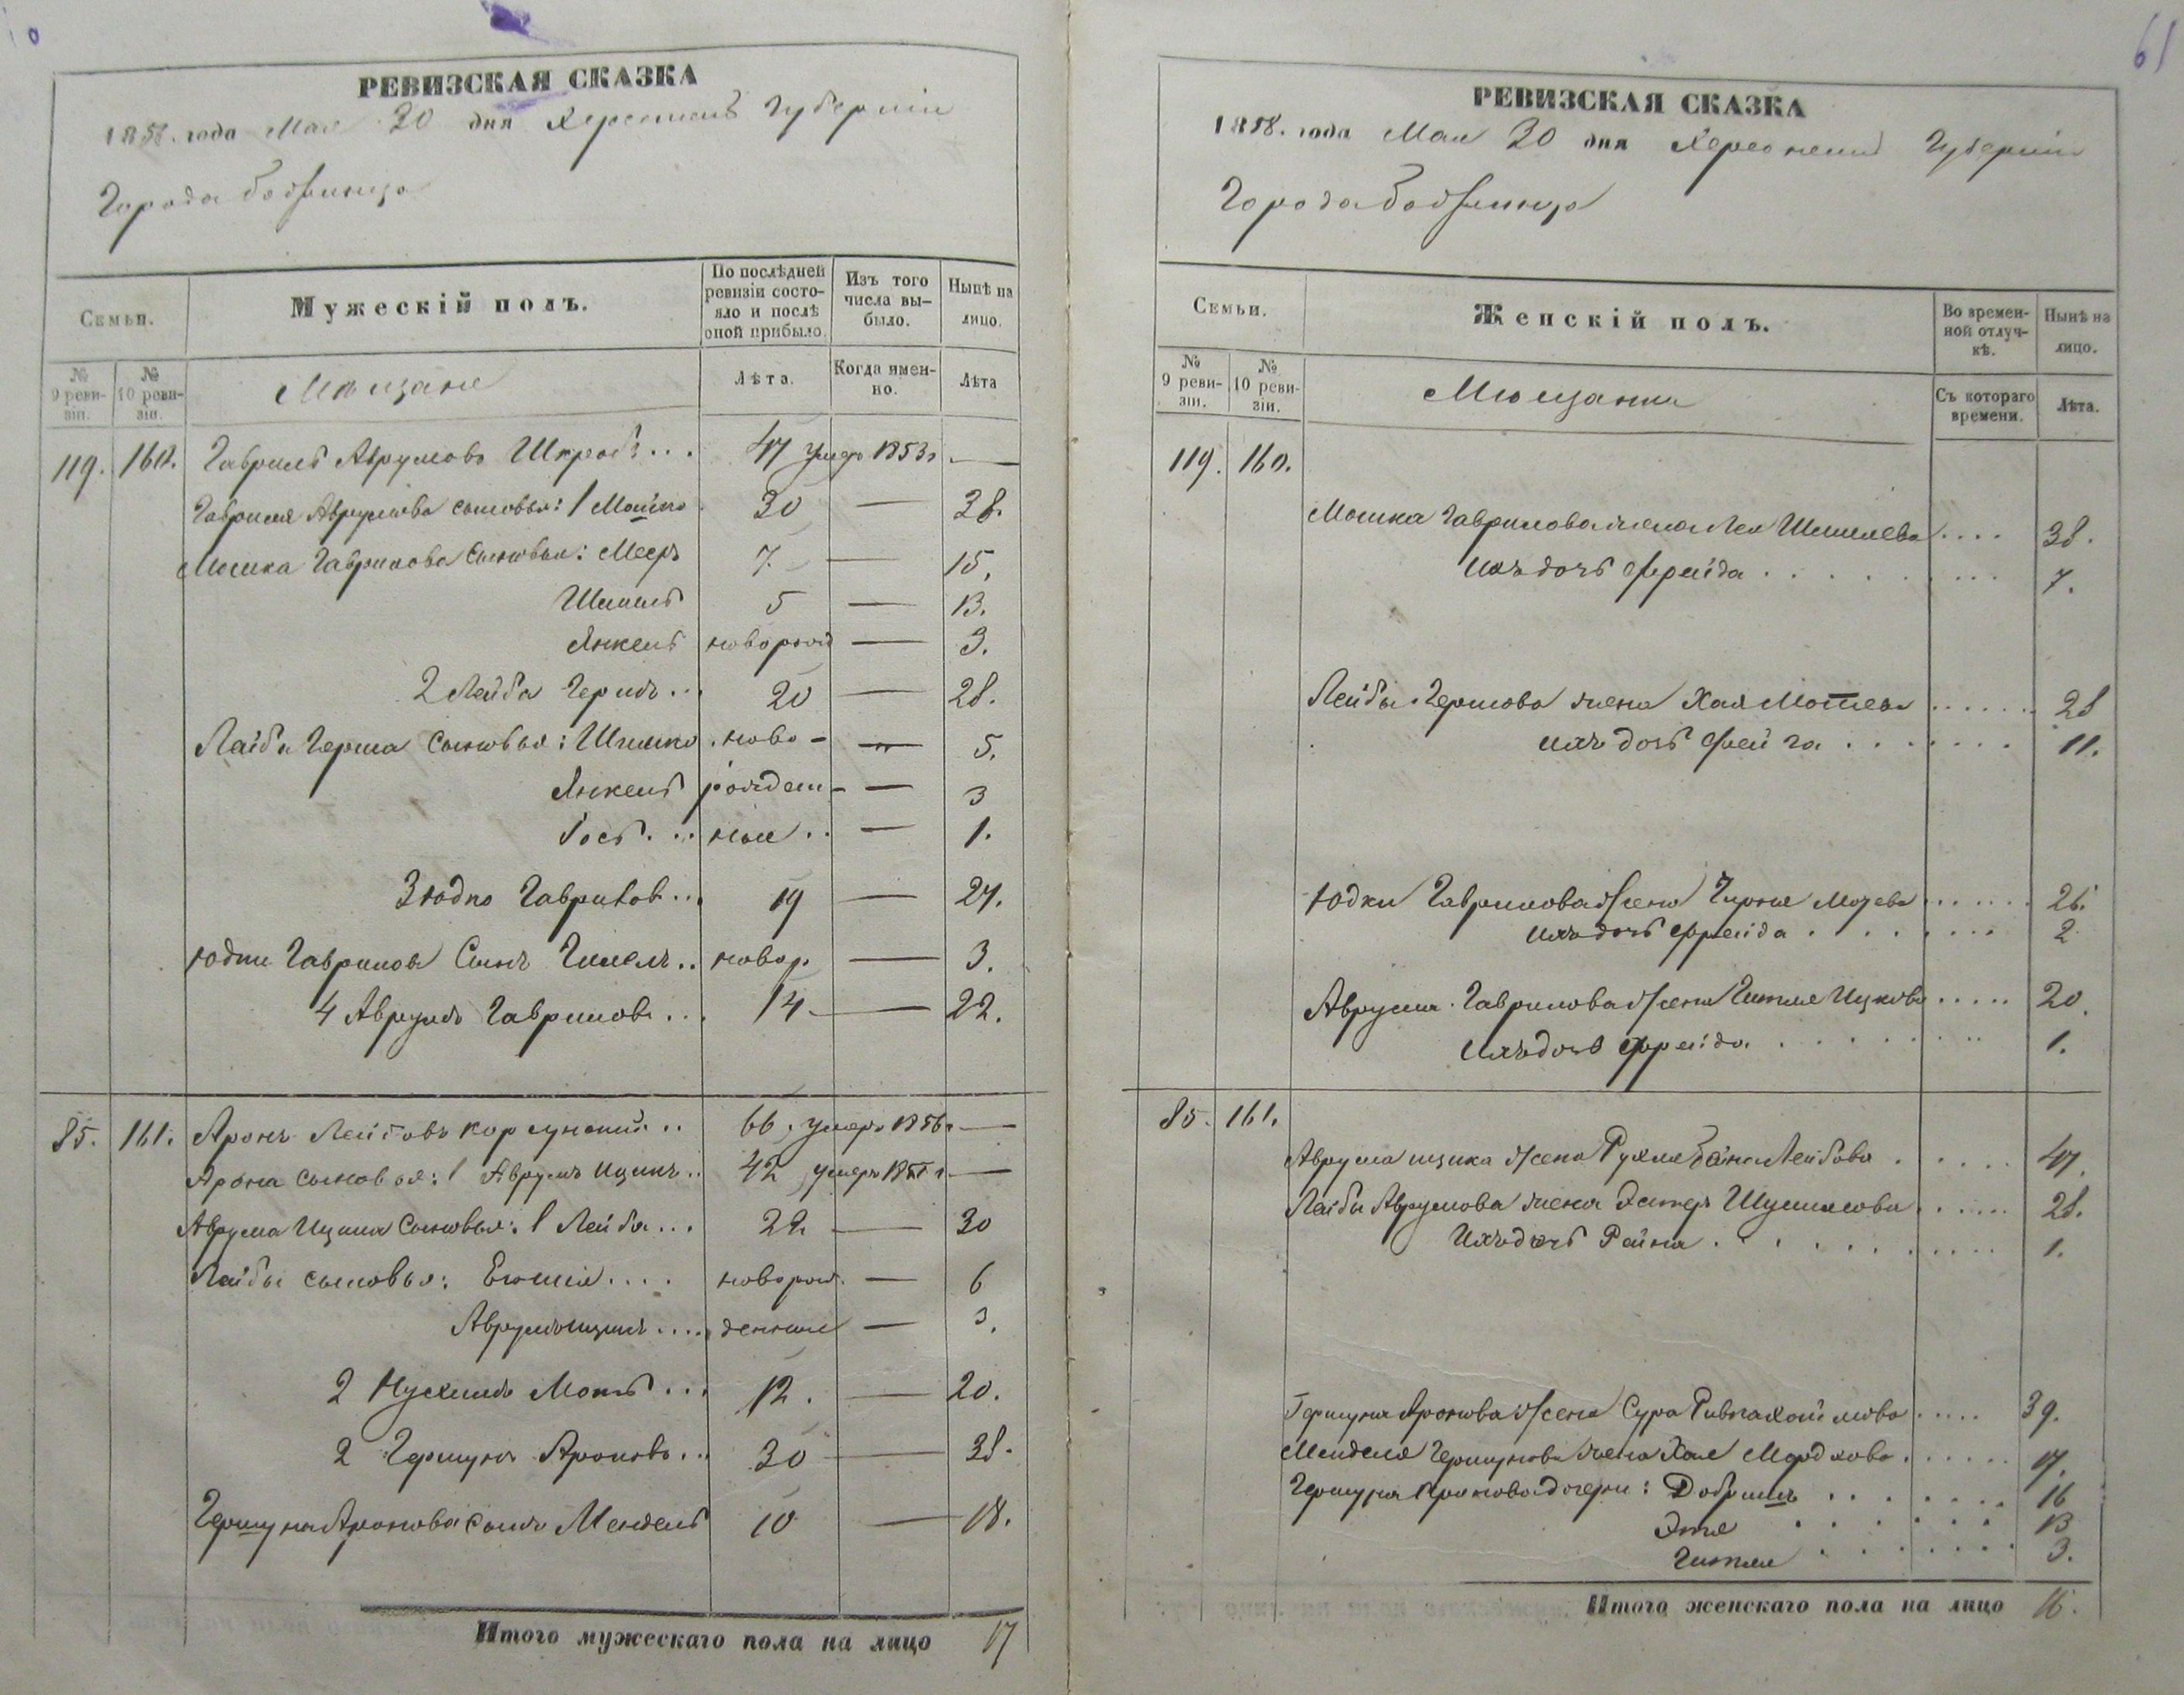 РЕВИЗСКАЯ СКАЗКА
1858. года Мая 20 дня Херсонской Губернiи
Города Бобринца
Семьи.
Мужескiй полъ.
По послѣдней ревизiи состояло и послѣ оной прибыло.
Изъ того числа выбыло.
Нынѣ на лицо.
№ 9 ревизiи.
№ 10 ревизiи.
Мѣщане
Лѣта.
Когда именно.
Лѣта
119. 160. Гаврилъ Аврумовъ Шкробъ... 47 умеръ 1853г —
Гаврила Аврумова сыновья: 1 Мошко 30 — 38.
Мошка Гаврилова Сыновья: Мееръ 7. — 15.
Шмилъ 5 — 13.
Янкель новорожд — 3.
2 Лейба Гершъ... 20 — 28.
Лейби Герша Сыновья: Шимко. ново- — 5.
Янкель рожден- — 3
Iось... ные.. — 1.
3 Юдко Гаврилов... 19 — 27.
Юдки Гаврилова Сынъ Гилелъ.. новор. — 3.
4 Аврумъ Гавриловъ... 14 — 22.
85. 161. Аронъ Лейбовъ Корсунскiй.. 66. умеръ 1856г —
Арона сыновья: 1 Аврумъ Ицикъ.. 42 умеръ —
Аврума Ицика Сыновья: 1 Лейба... 22 — 30
Лейбы сыновья: новорож. — 6
Аврумъ Ицикъ.... денные — 3.
2 Нухимъ... 12. — 20.
2 Гершунъ Ароновъ... 30 — 38.
Гершуна Аронова сынъ Мендель 10 — 18.
Итого мужескаго пола на лицо 17
61
РЕВИЗСКАЯ СКАЗКА
1858. года Мая 20 дня Херсонской Губернiи
Города Бобринца
Семьи.
Женскiй полъ.
Во временной отлучкѣ.
Нынѣ на лицо.
№ 9 ревизiи.
№ 10 ревизiи.
Мѣщанки
Съ котораго времени.
Лѣта.
119. 160.
Мошка Гаврилова жена Лея Шмилева.... 38.
Ихъ дочь Фрейда........ 7.
Лейбы Гершова жена Хая Мошева...... 28
ихъ дочь Фейга....... 11.
Юдки Гаврилова жена Мозева...... 26.
Ихъ дочь Фрейда....... 2
Аврума Гаврилова жена Гитля Ицкова..... 20.
Ихъ дочь Фрейда........ 1.
85. 161.
Аврума Ицика жена Рухля Бейна Лейбова..... 47.
Лейбы Аврумова жена Эстеръ Шумилова...... 28.
Ихъ дочь Рейна.......... 1.
Гершуна Аронова жена Сура Ривка Хаймова..... 39.
Менделя Гершунова жена Хая Мордкова...... 17.
Гершуна Аронова дочери: Добришъ....... 16
Этя...... 13
Гитля...... 3.
Итого женскаго пола на лицо 16.